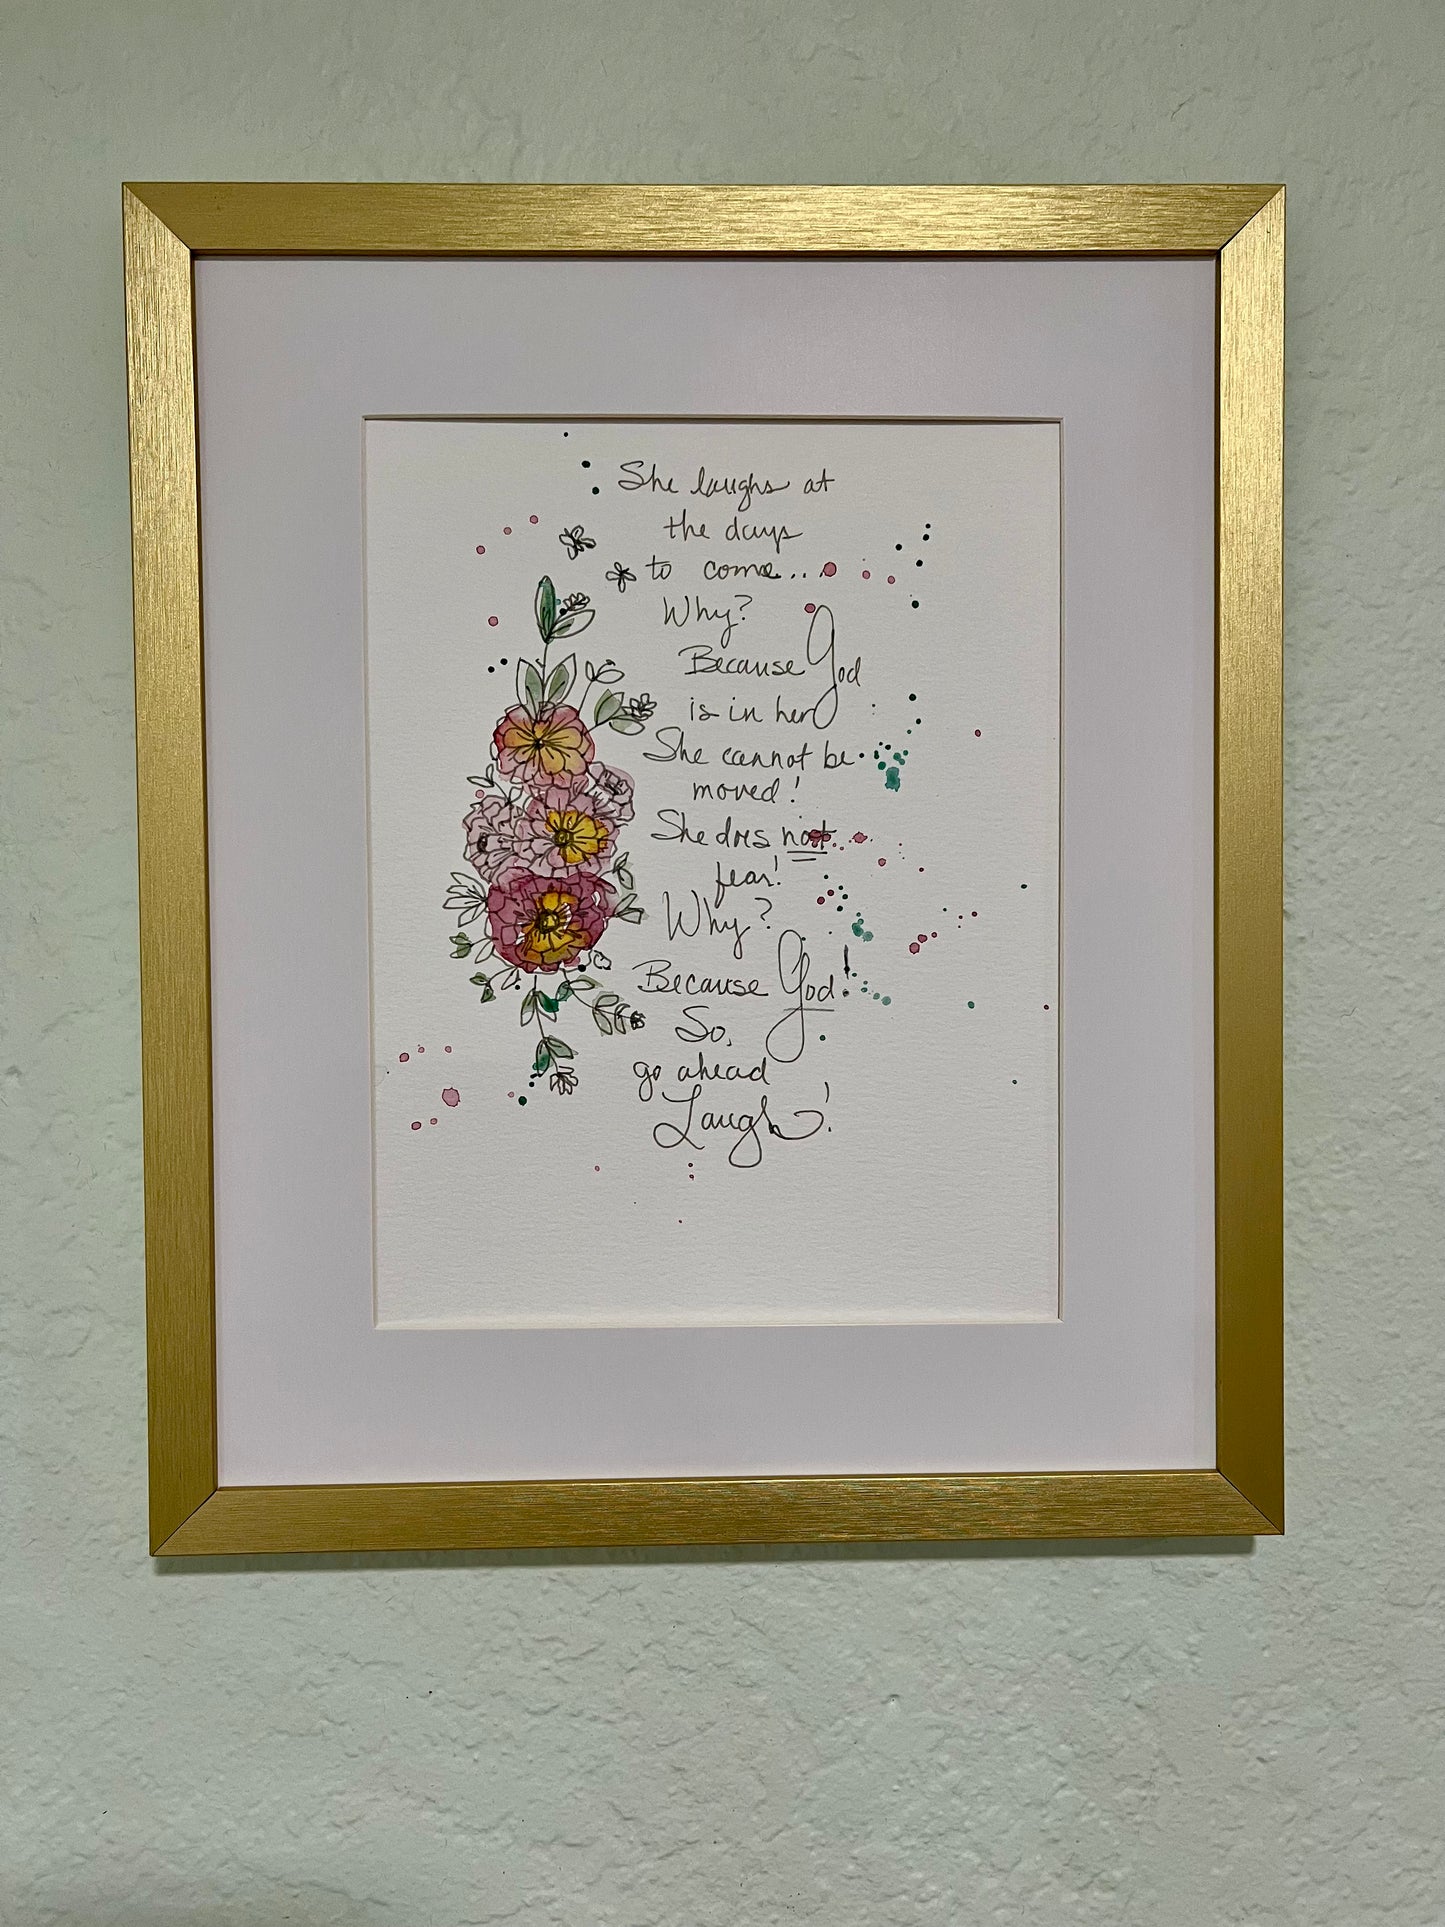 She laughs at
the days
to come...
Why?
Because God
is in her
She cannot be
moved!
She does not
fear!
Why?
Because God!
So,
go ahead
Laugh!